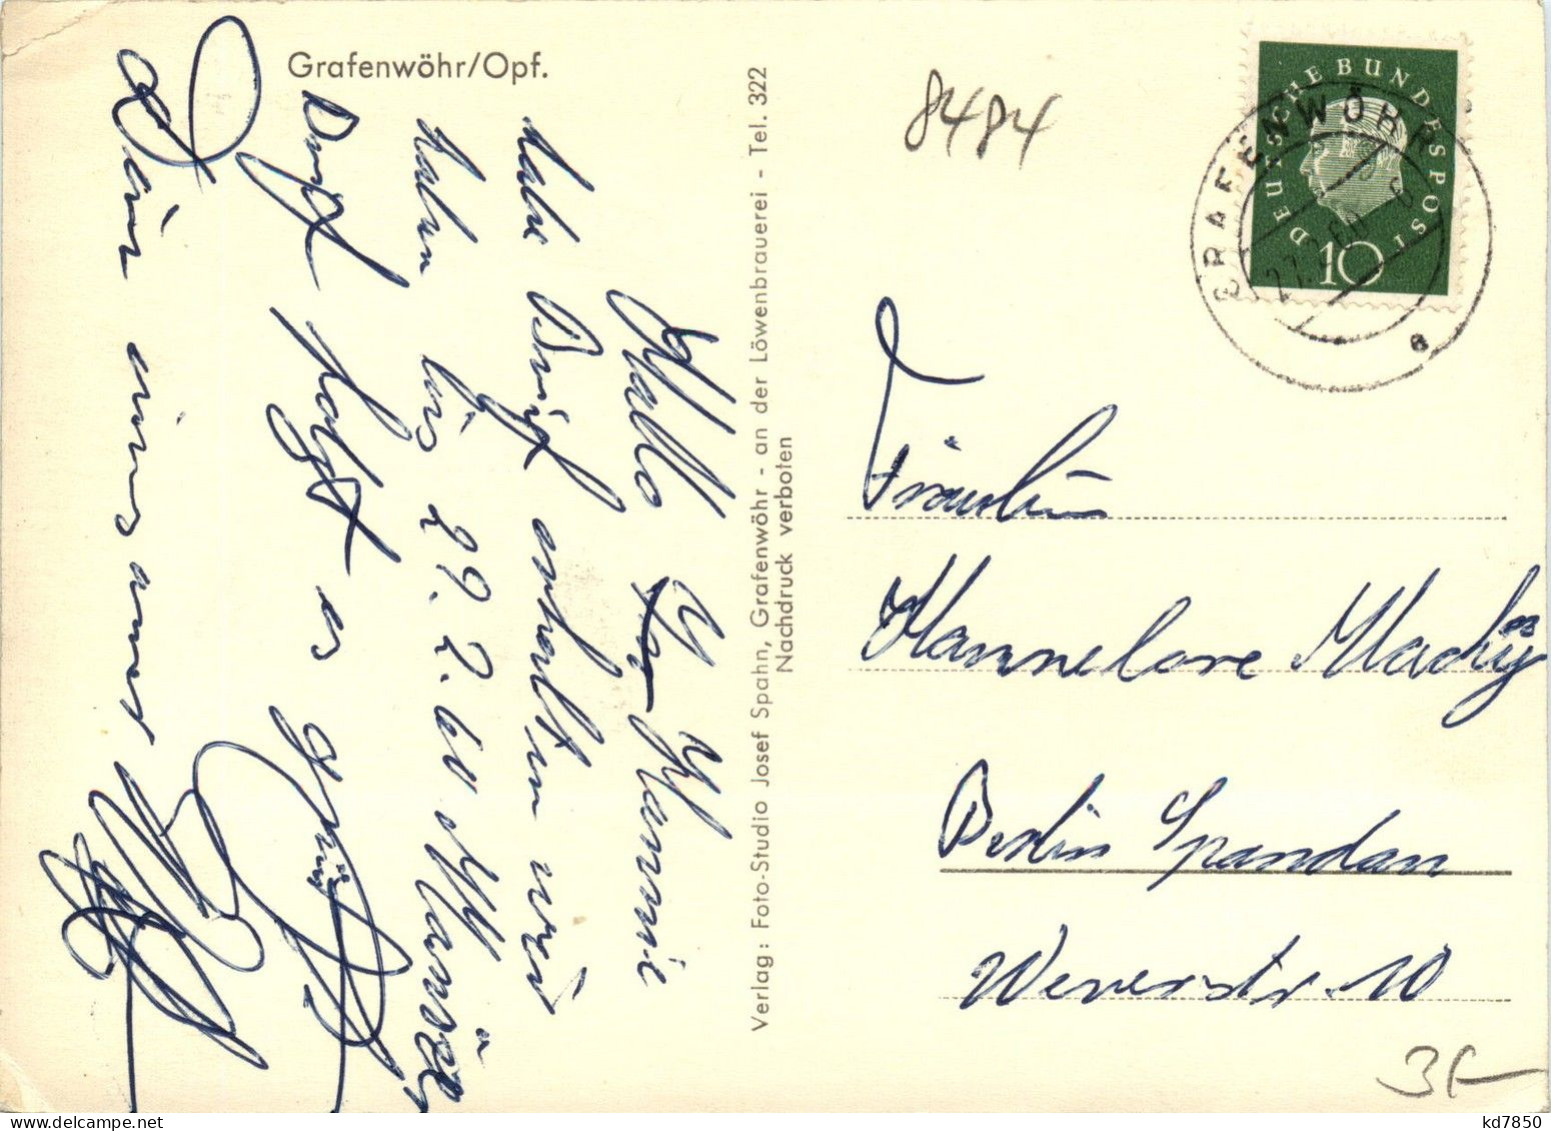 Grafenwöhr/Opf.
Hallo Hannie
habe Brief erhalten wir
haben bis 29.2.60 Manöver
Brief folgt es grüßt
Dein
Verlag: Foto-Studio Josef Spahn, Grafenwöhr - an der Löwenbrauerei - Tel. 322
Nachdruck verboten
8484
DEUTSCHE BUNDESPOST
10
GRAFENWÖHR
a
Fräulein
Hannelore
Berlin Spandau
Weverstr. 10
3f
kd7850